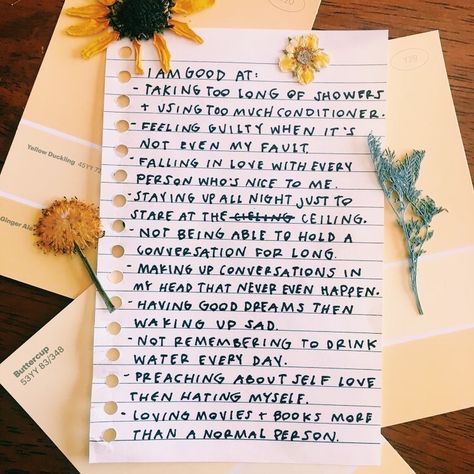 I AM GOOD AT:
- TAKING TOO LONG OF SHOWERS
+ USING TOO MUCH CONDITIONER.
- FEELING GUILTY WHEN IT'S
NOT EVEN MY FAULT.
- FALLING IN LOVE WITH EVERY
PERSON WHO'S NICE TO ME.
- STAYING UP ALL NIGHT JUST TO
STARE AT THE CIELING CEILING.
- NOT BEING ABLE TO HOLD A
CONVERSATION FOR LONG.
- MAKING UP CONVERSATIONS IN
MY HEAD THAT NEVER EVEN HAPPEN.
- HAVING GOOD DREAMS THEN
WAKING UP SAD.
- NOT REMEMBERING TO DRINK
WATER EVERY DAY.
- PREACHING ABOUT SELF LOVE
THEN HATING MYSELF.
- LOVING MOVIES + BOOKS MORE
THAN A NORMAL PERSON.
Yellow Duckling 45YY
Ginger Ale
Buttercup
53YY 83/348
Y29